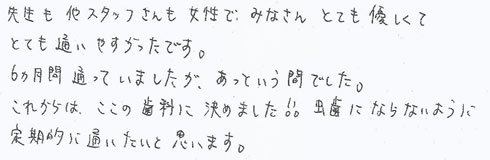 先生も 他スタッフさんも 女性で みなさん とても 優しくて
とても 通い やすかったです。
6ヵ月間 通って いましたが、あっという間でした。
これからは、ここの 歯科に 決めました!! 虫歯に ならないように
定期的に 通いたいと 思います。